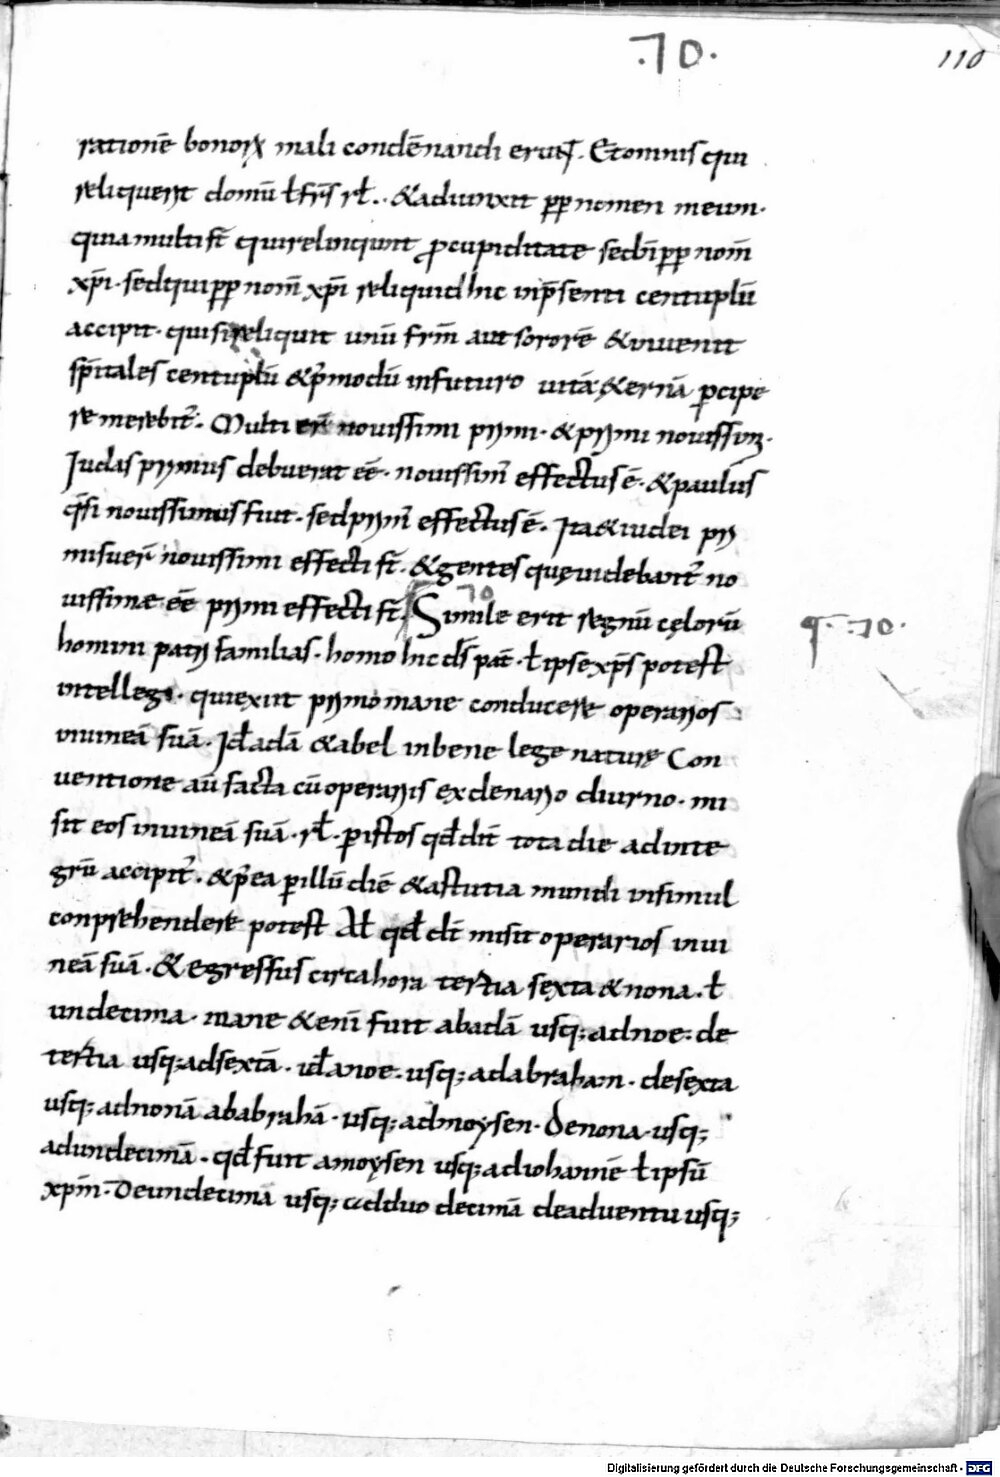 .70.
110
rationē bonorꝝ mali condēnandi erunt. Et omnis qui
reliquerit domū ł fr̄s rł. &adiunxit ꝓp nomen meum.
quia multi st̄ qui relinquunt ꝓcupiditate sed n̄ ꝓp nom̄
xp̄i. sed qui ꝓp nom̄ xp̄i reliquid hic inp̄senti centuplū
accipit. quisi reliquit unū frm̄ aut sororē &inuenit
sp̄itales centuplū &p̄modū infuturo uitā &ernā ꝑcipe
re merebit̄. Multi er̄ nouissimi primi. &primi nouissimi.
Iudas primus debuerat eē. nouissim̄ effectus ē. &paulus
q̄si nouissimus fuit. sed prim̄ effectus ē. Ita &iudei pri
mi fuer̄ nouissimi effecti st̄. &gentes quę uidebant̄ no
uissimae eē primi effecti st̄. 70 Simile erit regnū cęlorū
homini patri familias. homo hic ds̄ pat̄. ł ipse xp̄s potest
intellegi. qui exiit primo mane conducere operarios
inuineā suā. Id ̄ adā &abel inbene lege naturę Con
uentione aū facta cū operariis ex denario diurno. mi
sit eos inuineā suā. rł. ꝑ istos qđ dič tota die adinte
grū accipit̄. &p̄ea ꝑ illū diē &astutia mundi insimul
conprehendere potest Al̄ qđ dič misit operarios inui
neā suā. &egressus circa hora tertia sexta &nona. ł
undecima. mane &enī fuit abadā usq; adnoe. de
tertia usq; adsextā. id ̄ anoe. usq; adabraham. desexta
usq; adnonā ababrahā. usq; admoysen. Denona usq;
adundecimā. qđ fuit amoysen usq; adiohannē ł ipsū
xpm̄. Deundecimā usq; adduo decimā deaduentu usq;
¶. .70.
Digitalisierung gefördert durch die Deutsche Forschungsgemeinschaft - DFG